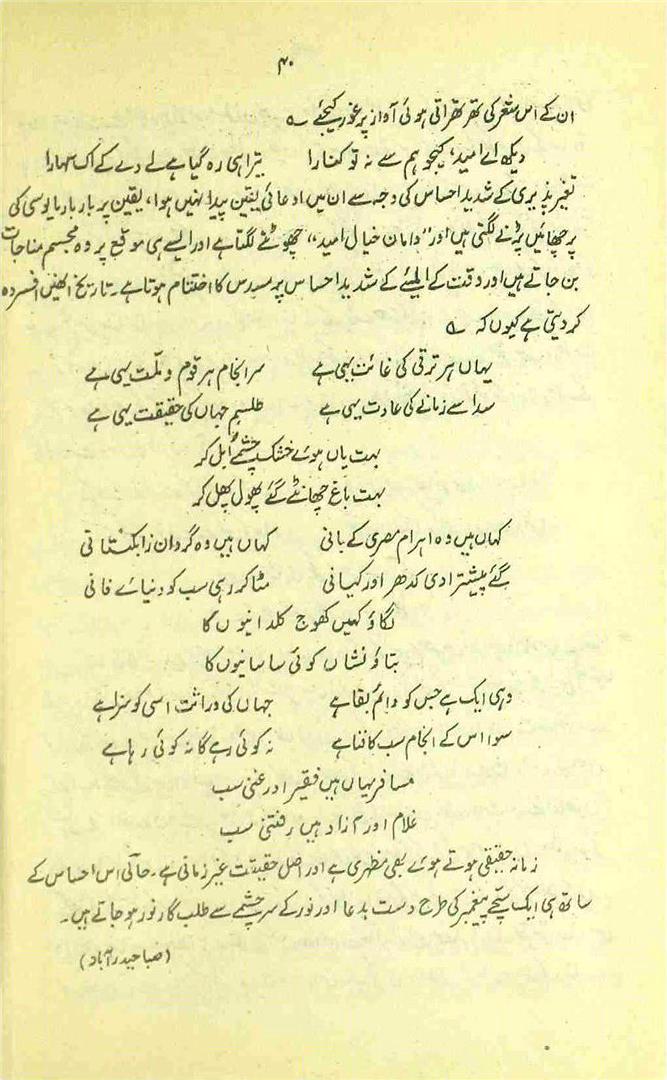 ۴۰
ان کے اس شعر کی تھرتھراتی ہوئی آواز پر غور کیجئے ؎
دیکھ اے امید، کیجو ہم سے نہ تو کنارا تیرا ہی رہ گیا ہے لے دے کے اک سہارا
تغیر پذیری کے شدید احساس کی وجہ سے ان میں ادعائی یقین پیدا نہیں ہوا، یقین پر بار بار مایوسی کی
پرچھائیں پڑنے لگتی ہیں اور "دامان خیال امید" چھوٹنے لگتا ہے اور ایسے ہی موقع پر وہ مجسم مناجات
بن جاتے ہیں اور وقت کے المیئے کے شدید احساس پر مسدس کا اختتام ہوتا ہے۔ تاریخ انھیں افسردہ
کر دیتی ہے کیوں کہ ؎
یہاں ہر ترقی کی غائت یہی ہے سرانجام ہر قوم و ملّت یہی ہے
سدا سے زمانے کی عادت یہی ہے طلسمِ جہاں کی حقیقت یہی ہے
بہت یاں ہوئے خشک چشمے اُبل کر
بہت باغ چھانٹے گئے پھول پھل کر
کہاں ہیں وہ اہرام مصری کے بانی کہاں ہیں وہ گردان زابلستانی
گئے پیشدادی کدھر اور کیانی مٹا کر رہی سب کو دنیائے فانی
لگاؤ کہیں کھوج کلدانیوں کا
بتاؤ نشاں کوئی ساسانیوں کا
وہی ایک ہے جس کو دائم بقا ہے جہاں کی وراثت اسی کو سزا ہے
سوا اس کے انجام سب کا فنا ہے نہ کوئی رہے گا نہ کوئی رہا ہے
مسافر یہاں ہیں فقیر اور غنی سب
غلام اور آزاد ہیں رفتنی سب
زمانہ حقیقی ہوتے ہوئے بھی مظہری ہے اور اصل حقیقت غیر زمانی ہے۔ حالی اس احساس کے
ساتھ ہی ایک سچے پیغمبر کی طرح دست بدعا اور نور کے سرچشمے سے طلب گار نور ہو جاتے ہیں۔
(صبا حیدرآباد)